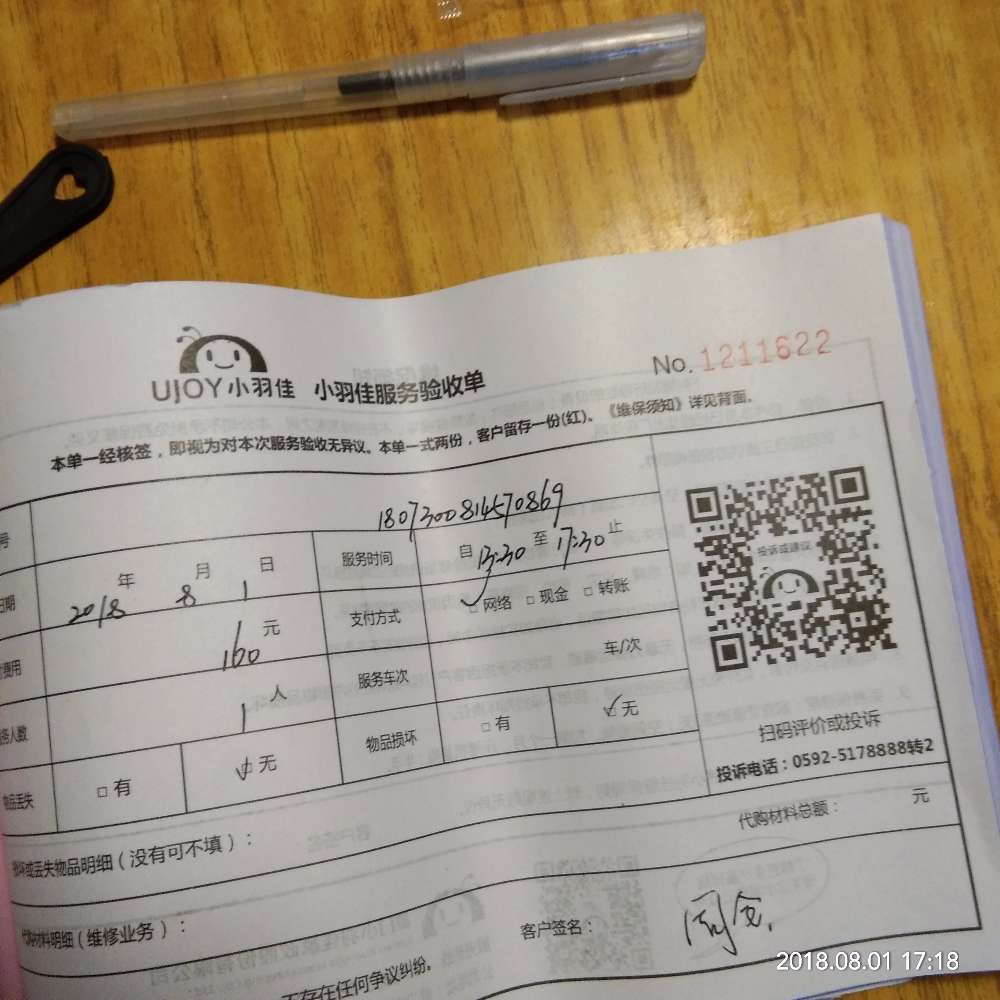 UJOY小羽佳 小羽佳服务验收单 No. 1211622
本单一经核签，即视为对本次服务验收无异议。本单一式两份，客户留存一份(红)。《维保须知》详见背面。
号 1807300814570869
日期 2018年 8月 1日 服务时间 自13:30至17:30止
费用 160元 支付方式 ☑网络 □现金 □转账
务人数 1人 服务车次 车/次
物品丢失 □有 ☑无 物品损坏 □有 ☑无
投诉或建议
扫码评价或投诉
投诉电话：0592-5178888转2
损坏或丢失物品明细（没有可不填）： 代购材料总额： 元
代购材料明细（维修业务）：
客户签名：
不存在任何争议纠纷。
2018.08.01 17:18